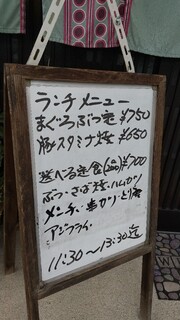 ランチメニュー
まぐろぶつ定 ¥750
豚スタミナ焼 ¥650
選べる定食 ¥700
ぶつ、さば焼、ハムカツ
メンチ、串カツ、とり
アジフライ、
11:30〜13:30迄